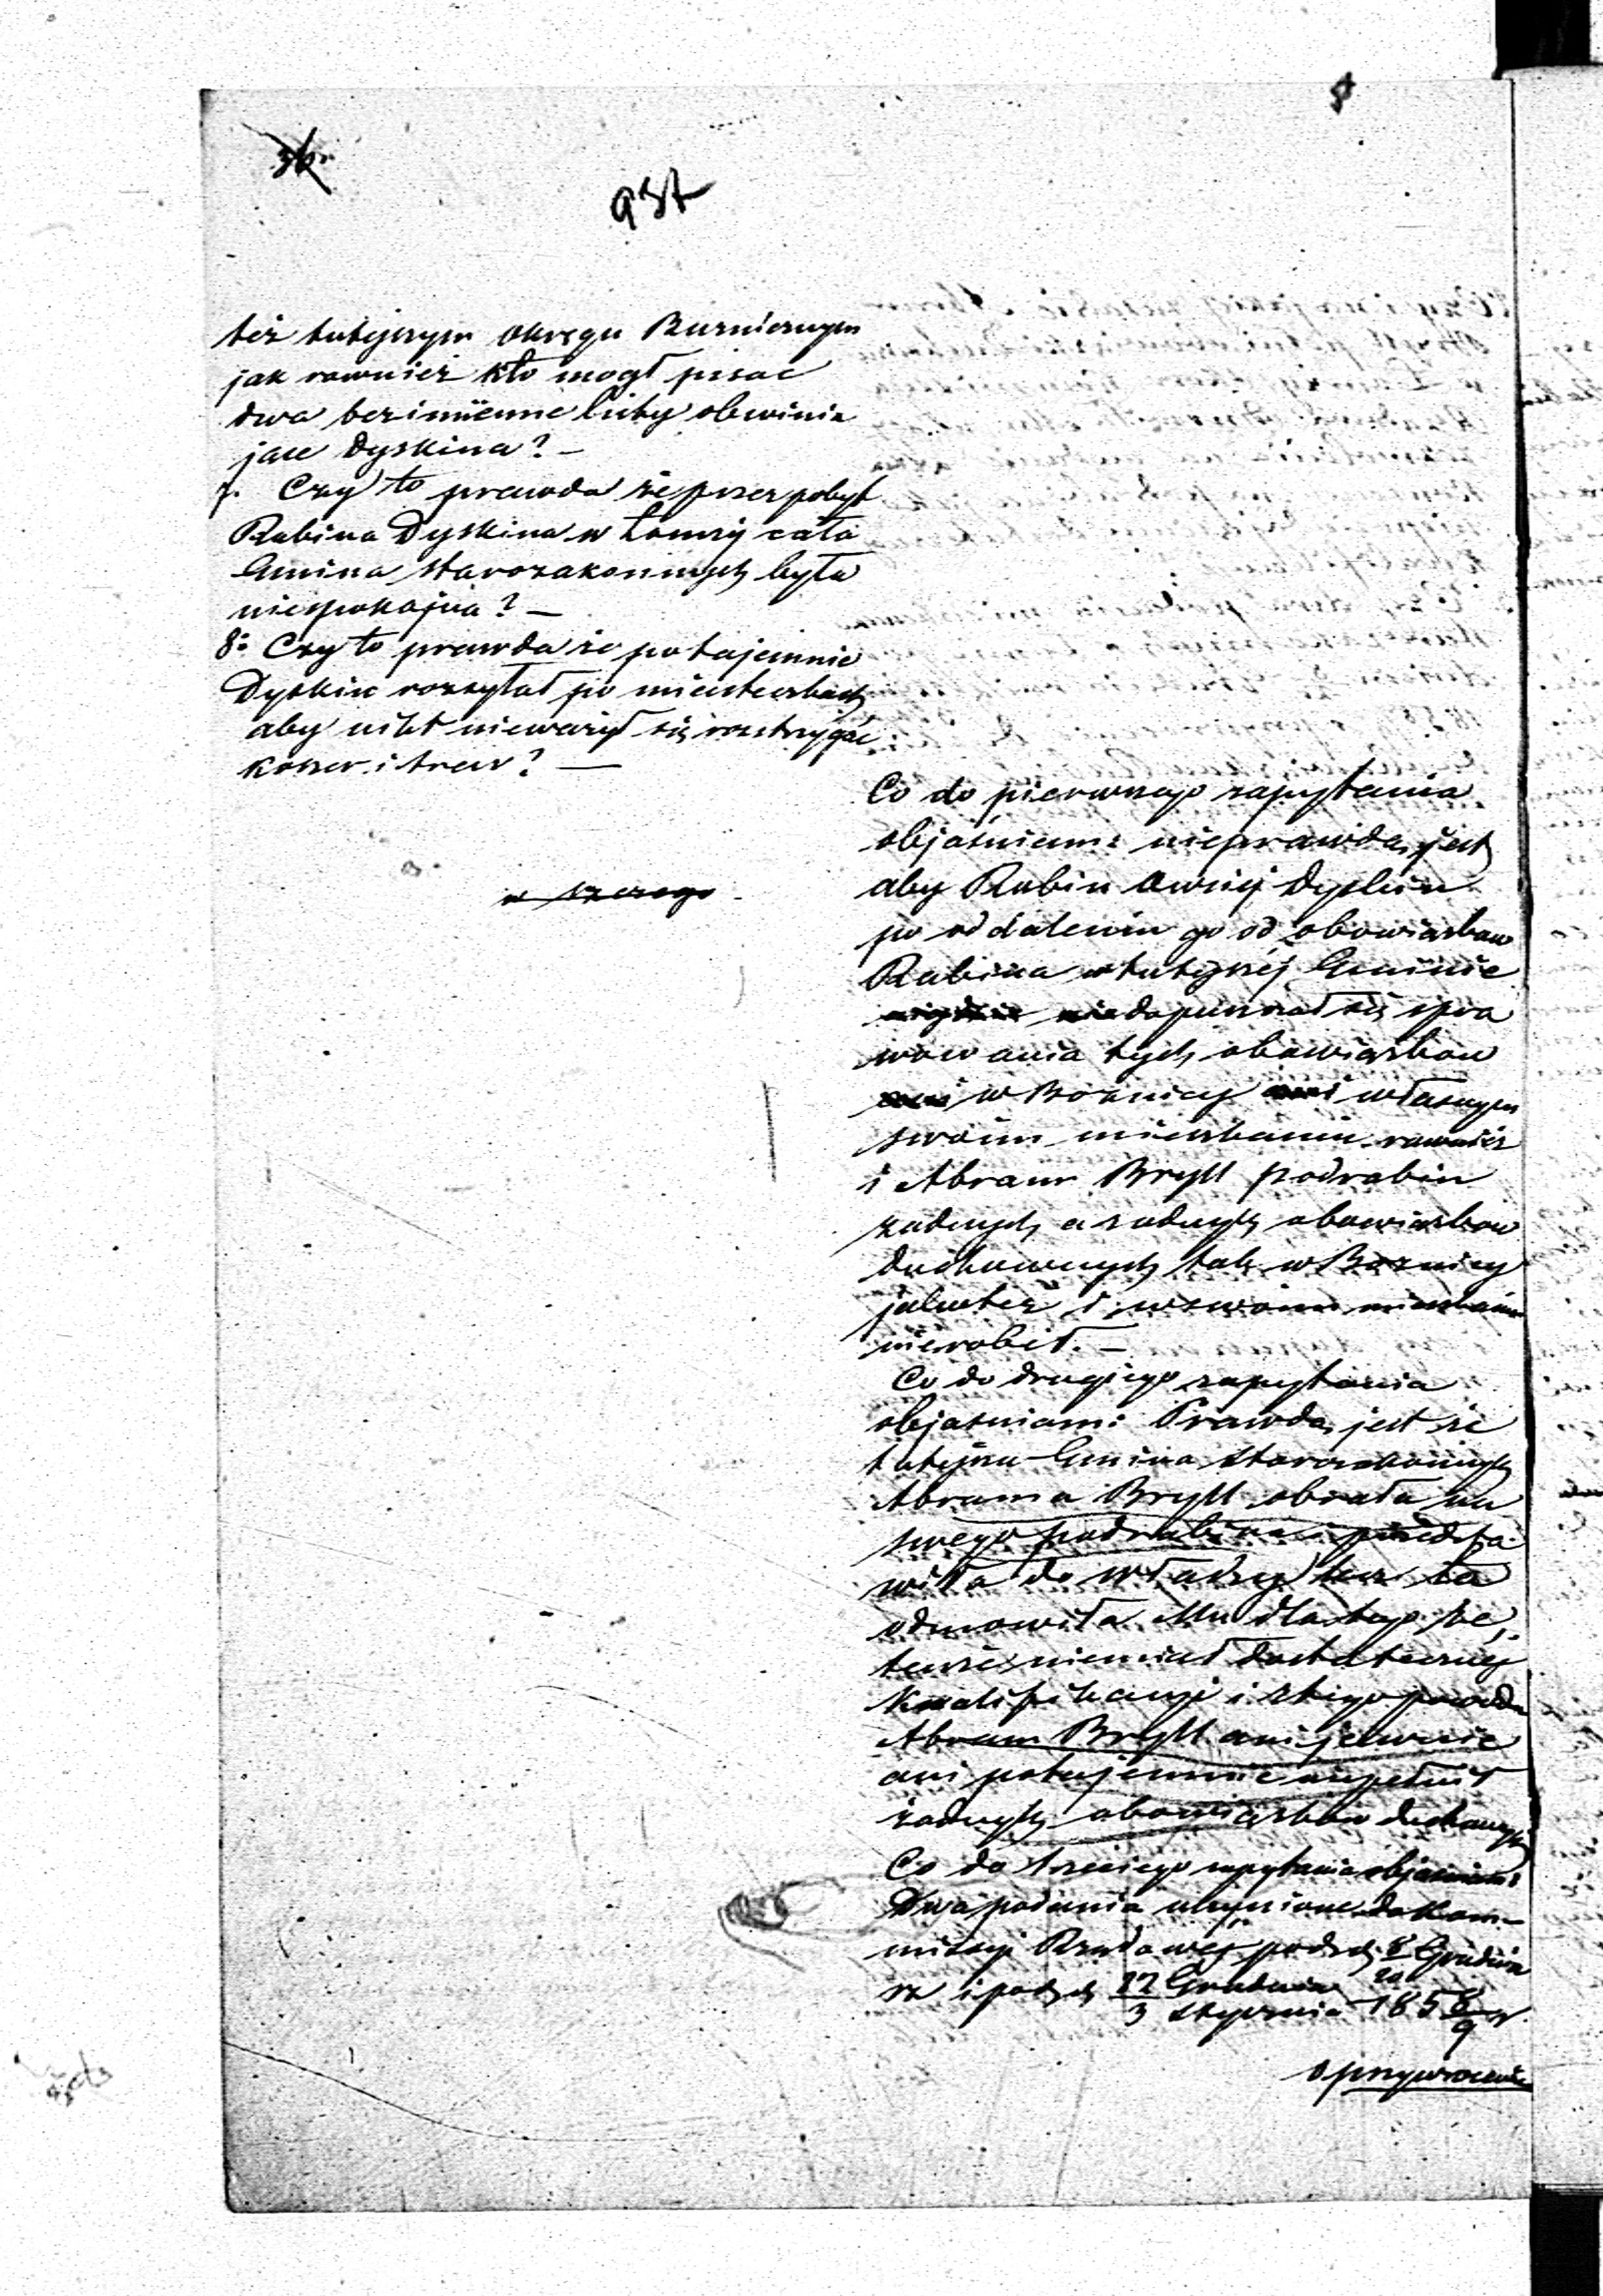 937
też tutejszym okręgu Buznicznym
jak rownież kto mogł pisac
dwa bezimienne listy obwinia
jące Dyskina? —
7. Czy to prawda że przez pobyt
Rabina Dyskina w Łomży cała
Gmina Starozakonnych była
niespokojna? —
8: Czy to prawda że potajemnie
Dyskin rozsyłał po miasteczkach
aby nikt nieważył się rozstrzygać
koszer i tref? —
Co do pierwszego zapytania
objaśniam: nieprawdą jest
aby Rabin Owziej Dyskin
po oddaleniu go od obowiązkow
Rabina w tutejszéj Gminie
dopuszczał się spra
wowania tych obowiązkow
w Bożnicy i własnym
swoim mieszkaniu rownież
i Abram Bryll podrabin
żadnych a żadnych obowiązkow
duchownych tak w Boznicy
jako też i w swoim mieszkaniu
nierobił. —
Co do drugiego zapytania
objasniam: Prawdą jest że
tutejsza Gmina Starozakonnych
Abrama Bryll obrała na
swego podrabina i przedsta
wiła do władzy lecz ta
odmowiła Mu dla tego że
tenże niemiał dostatecznéj
kwalifikacyi i z tego powodu
Abram Bryll ani jawnie
ani potajemnie niepełnił
żadnych obowiązkow duchownych
Co do trzeciego zapytania objasniam:
Dwa podania uczynione do Kom-
missyi Rządowéj pod d. 8/20 Grudnia
rz i pod d. 22 Grudnia/3 Stycznia 1858/9 r.
o przywrocenie